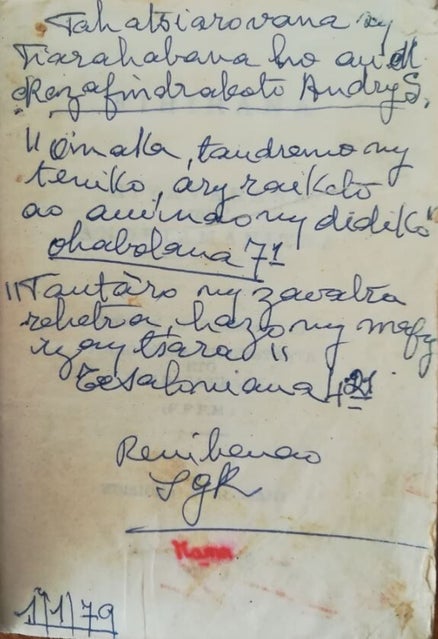 Tahatsiarovana ny
Tiarahabana ho an'i
Razafindrakoto Andry S.
"O anaka, tandremo ny
teniko, ary raiketo
ao aminao ny didiko"
ohabolana 71
"Fantaro ny zavatra
rehetra, hazony mafy
izay tsara"
Tesaloniana
Renibenao
Mama
1/1/79